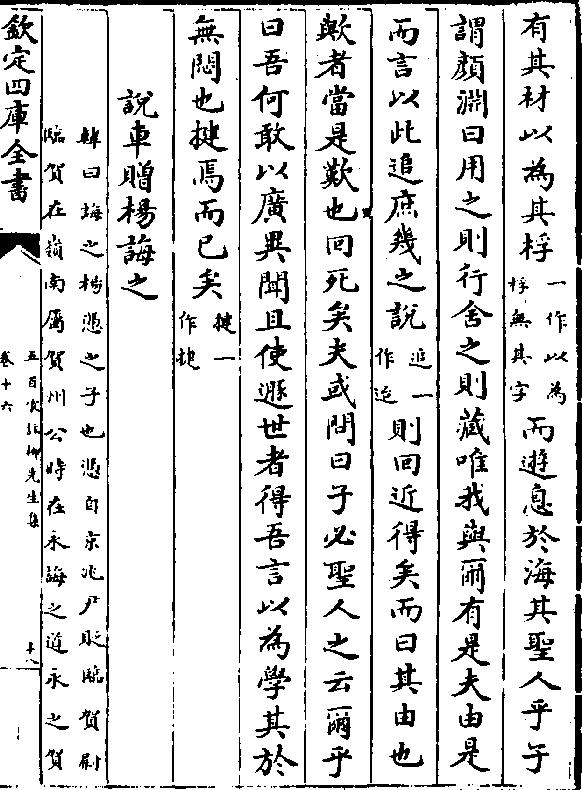 有其材以為其桴一作以為桴無其字而遊息於海其聖人乎子
謂顏淵曰用之則行舍之則藏唯我與爾有是夫由是
而言以此追庶幾之說追一作迨則回近得矣而曰其由也
歟者當是歎也回死矣夫或問曰子必聖人之云爾乎
曰吾何敢以廣異聞且使遯世者得吾言以為學其於
無悶也揵焉而已矣揵一作捷
說車贈楊誨之
韓曰誨之楊憑之子也憑自京兆尹貶臨賀尉
臨賀在嶺南屬賀州公時在永誨之道永之賀
欽定四庫全書
五百家註柳先生集
卷十六
十八